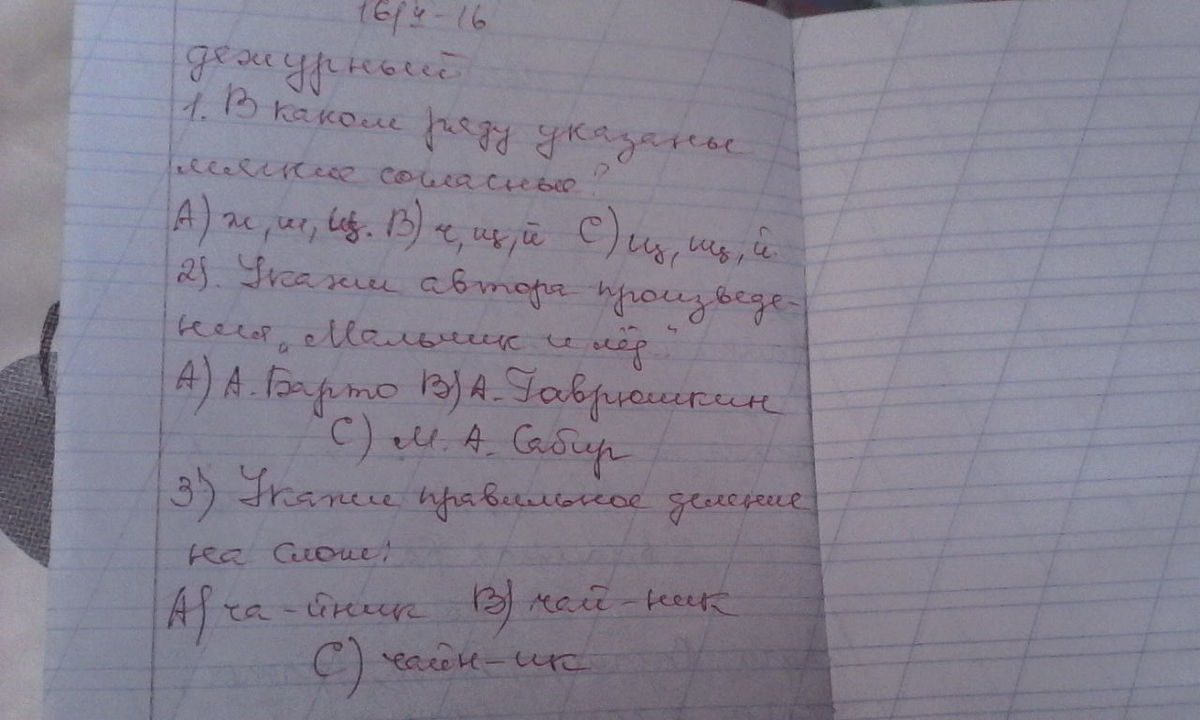 16/4-16
дежурный
1. В каком ряду указаны
мягкие согласные?
А) ж, ш, щ. В) ч, щ, й С) щ, щ, й.
2). Укажи автора произведе-
ния „Мальчик и лёд“
А) А. Барто В) А. Гаврюшкин
С) М. А. Сабир
3) Укажи правильное деление
на слоги:
А) ча-йник В) чай-ник
С) чайн-ик